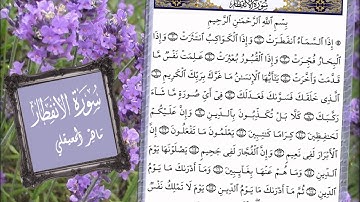 سُورَةُ الِانْفِطَارِ
بِسْمِ اللَّهِ الرَّحْمَٰنِ الرَّحِيمِ
إِذَا السَّمَاءُ انْفَطَرَتْ ۝ وَإِذَا الْكَوَاكِبُ انْتَثَرَتْ ۝ وَإِذَا
الْبِحَارُ فُجِّرَتْ ۝ وَإِذَا الْقُبُورُ بُعْثِرَتْ ۝ عَلِمَتْ نَفْسٌ مَا
قَدَّمَتْ وَأَخَّرَتْ ۝ يَاأَيُّهَا الْإِنْسَانُ مَا غَرَّكَ بِرَبِّكَ الْكَرِيمِ ۝
الَّذِي خَلَقَكَ فَسَوَّىٰكَ فَعَدَلَكَ ۝ فِي أَيِّ صُورَةٍ مَا شَاءَ
رَكَّبَكَ ۝ كَلَّا بَلْ تُكَذِّبُونَ بِالدِّينِ ۝ وَإِنَّ عَلَيْكُمْ
لَحَافِظِينَ ۝ كِرَامًا كَاتِبِينَ ۝ يَعْلَمُونَ مَا تَفْعَلُونَ ۝ إِنَّ
الْأَبْرَارَ لَفِي نَعِيمٍ ۝ وَإِنَّ الْفُجَّارَ لَفِي جَحِيمٍ ۝ يَصْلَوْنَهَا يَوْمَ
الدِّينِ ۝ وَمَا هُمْ عَنْهَا بِغَائِبِينَ ۝ وَمَا أَدْرَىٰكَ مَا يَوْمُ
الدِّينِ ۝ ثُمَّ مَا أَدْرَىٰكَ مَا يَوْمُ الدِّينِ ۝ يَوْمَ لَا تَمْلِكُ نَفْسٌ
سُورَةُ الِانْفِطَارِ
ماهر المعيقلي